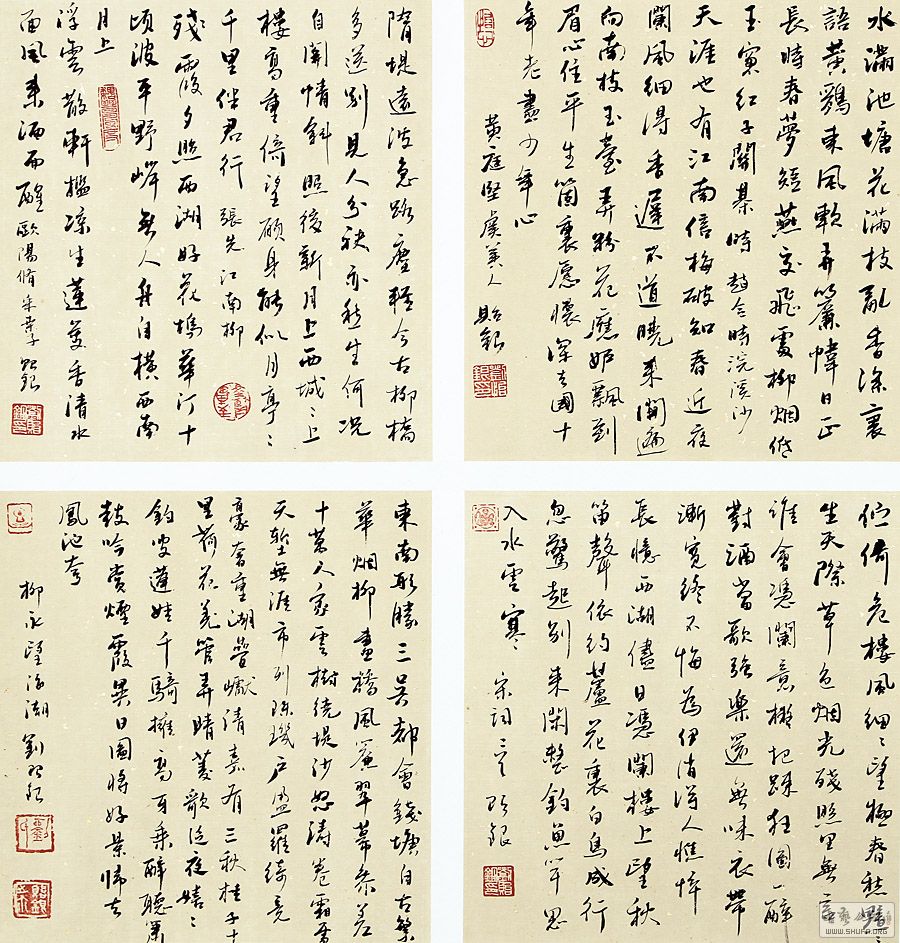 水滿池塘花滿枝亂香深裏
語黃鸝東風軟弄簾幃日正
長時春夢短燕交飛處柳烟低
玉窗紅子鬭棊時 趙令時浣溪沙
天涯也有江南信梅破知春近夜
闌風細得香遲不道曉來開遍
向南枝玉臺弄粉花應妒飄到
眉心住平生箇裏願懷深去國十
年老盡少年心
黃庭堅虞美人 貽銀
隋堤遠波急路塵輕今古柳橋
多送別見人分袂亦愁生何況
自關情斜照後新月上西城〻上
樓高重倚望願身能似月亭〻
千里伴君行 張先江南柳
殘霞夕照西湖好花塢蘋汀十
頃波平野岸無人舟自橫西南
月上
浮雲散軒檻涼生蓮芰香清水
面風來酒面醒 歐陽脩采桑子 貽銀
佇倚危樓風細〻望極春愁黯〻
生天際草色烟光殘照里無言
誰會憑闌意擬把疏狂圖一醉
對酒當歌強樂還無味衣帶
漸寬終不悔為伊消得人憔悴
長憶西湖儘日憑闌樓上望秋
笛聲依約蘆花裏白鳥成行
忽驚起別來閑整釣魚竿思
入水雲寒 宋詞二首 貽銀
東南形勝三吳都會錢塘自古繁
華烟柳畫橋風簾翠幕參差
十萬人家雲樹繞堤沙怒濤卷霜雪
天塹無涯市列珠璣戶盈羅綺競
豪奢重湖疊巘清嘉有三秋桂子十
里荷花羌管弄晴菱歌泛夜嬉〻
釣叟蓮娃千騎擁高牙乘醉聽簫
鼓吟賞煙霞異日圖將好景歸去
鳳池夸
柳永望海潮 劉貽銀
WWW.SHUFA.ORG